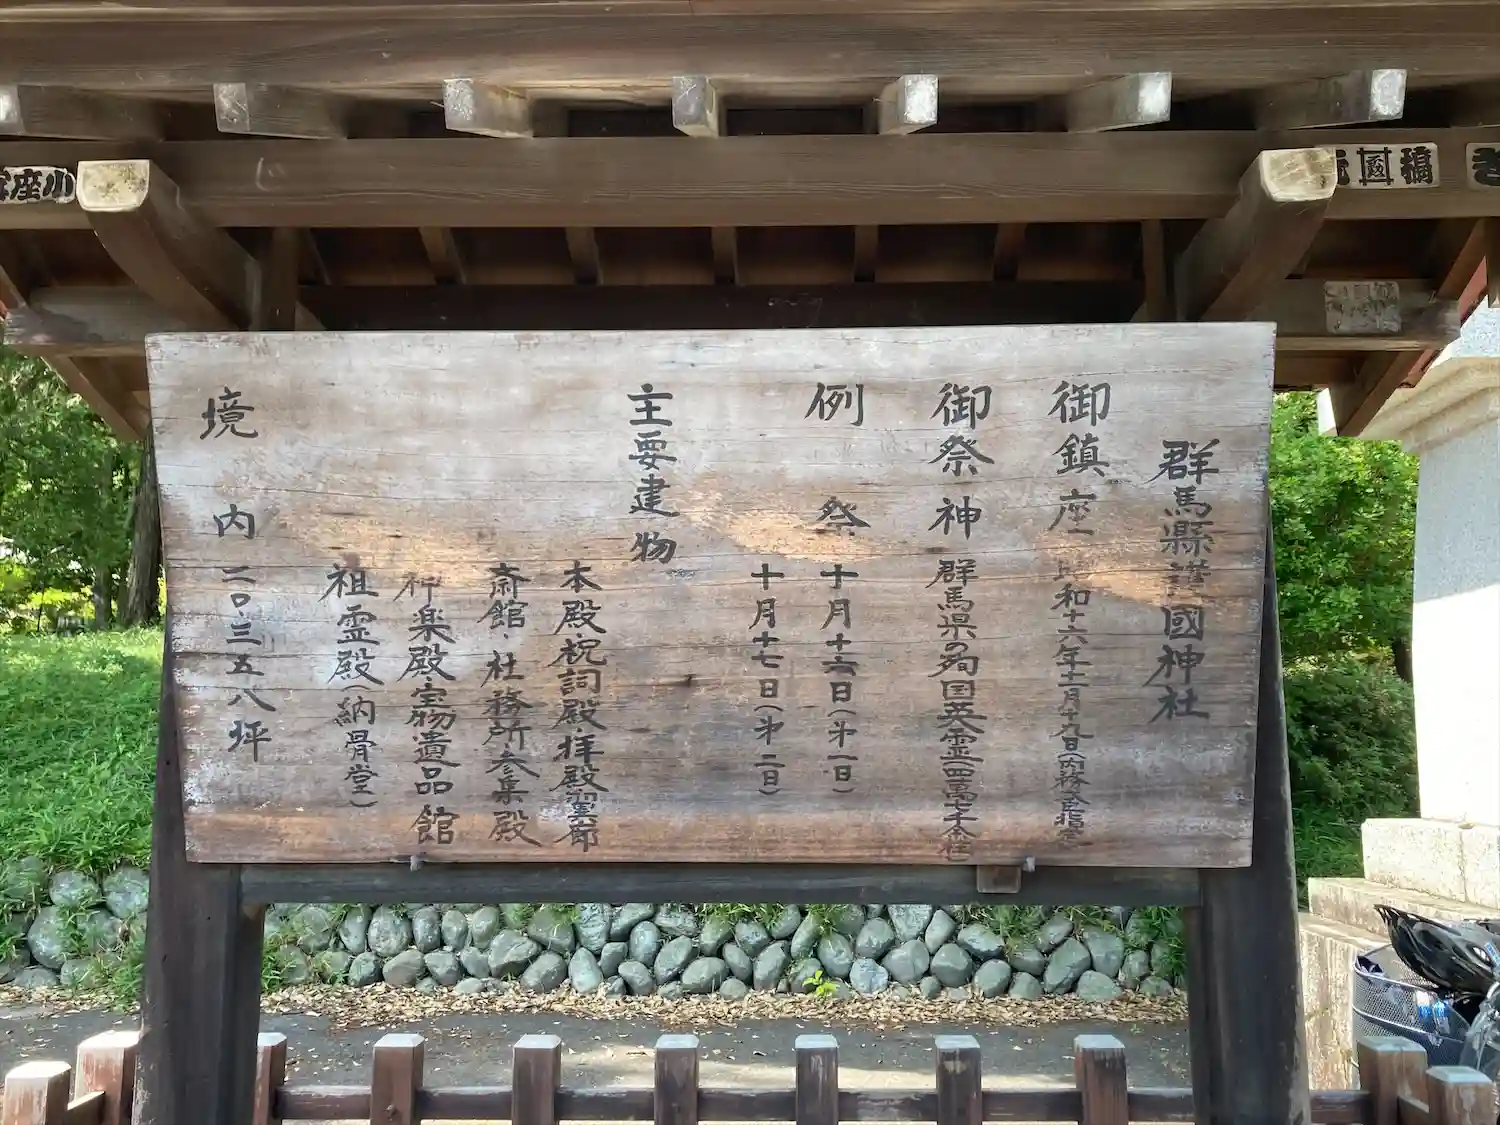 群馬縣護國神社
御鎮座 昭和十六年十一月十九日(内務大臣指定)
御祭神 群馬県の殉国英霊(四萬七千余柱)
例祭 十月十六日(第一日)
十月十七日(第二日)
主要建物
本殿・祝詞殿・拝殿・翼廊
斎館・社務所・参集殿
神楽殿・宝物遺品館
祖霊殿(納骨堂)
境内 二〇・三五八坪